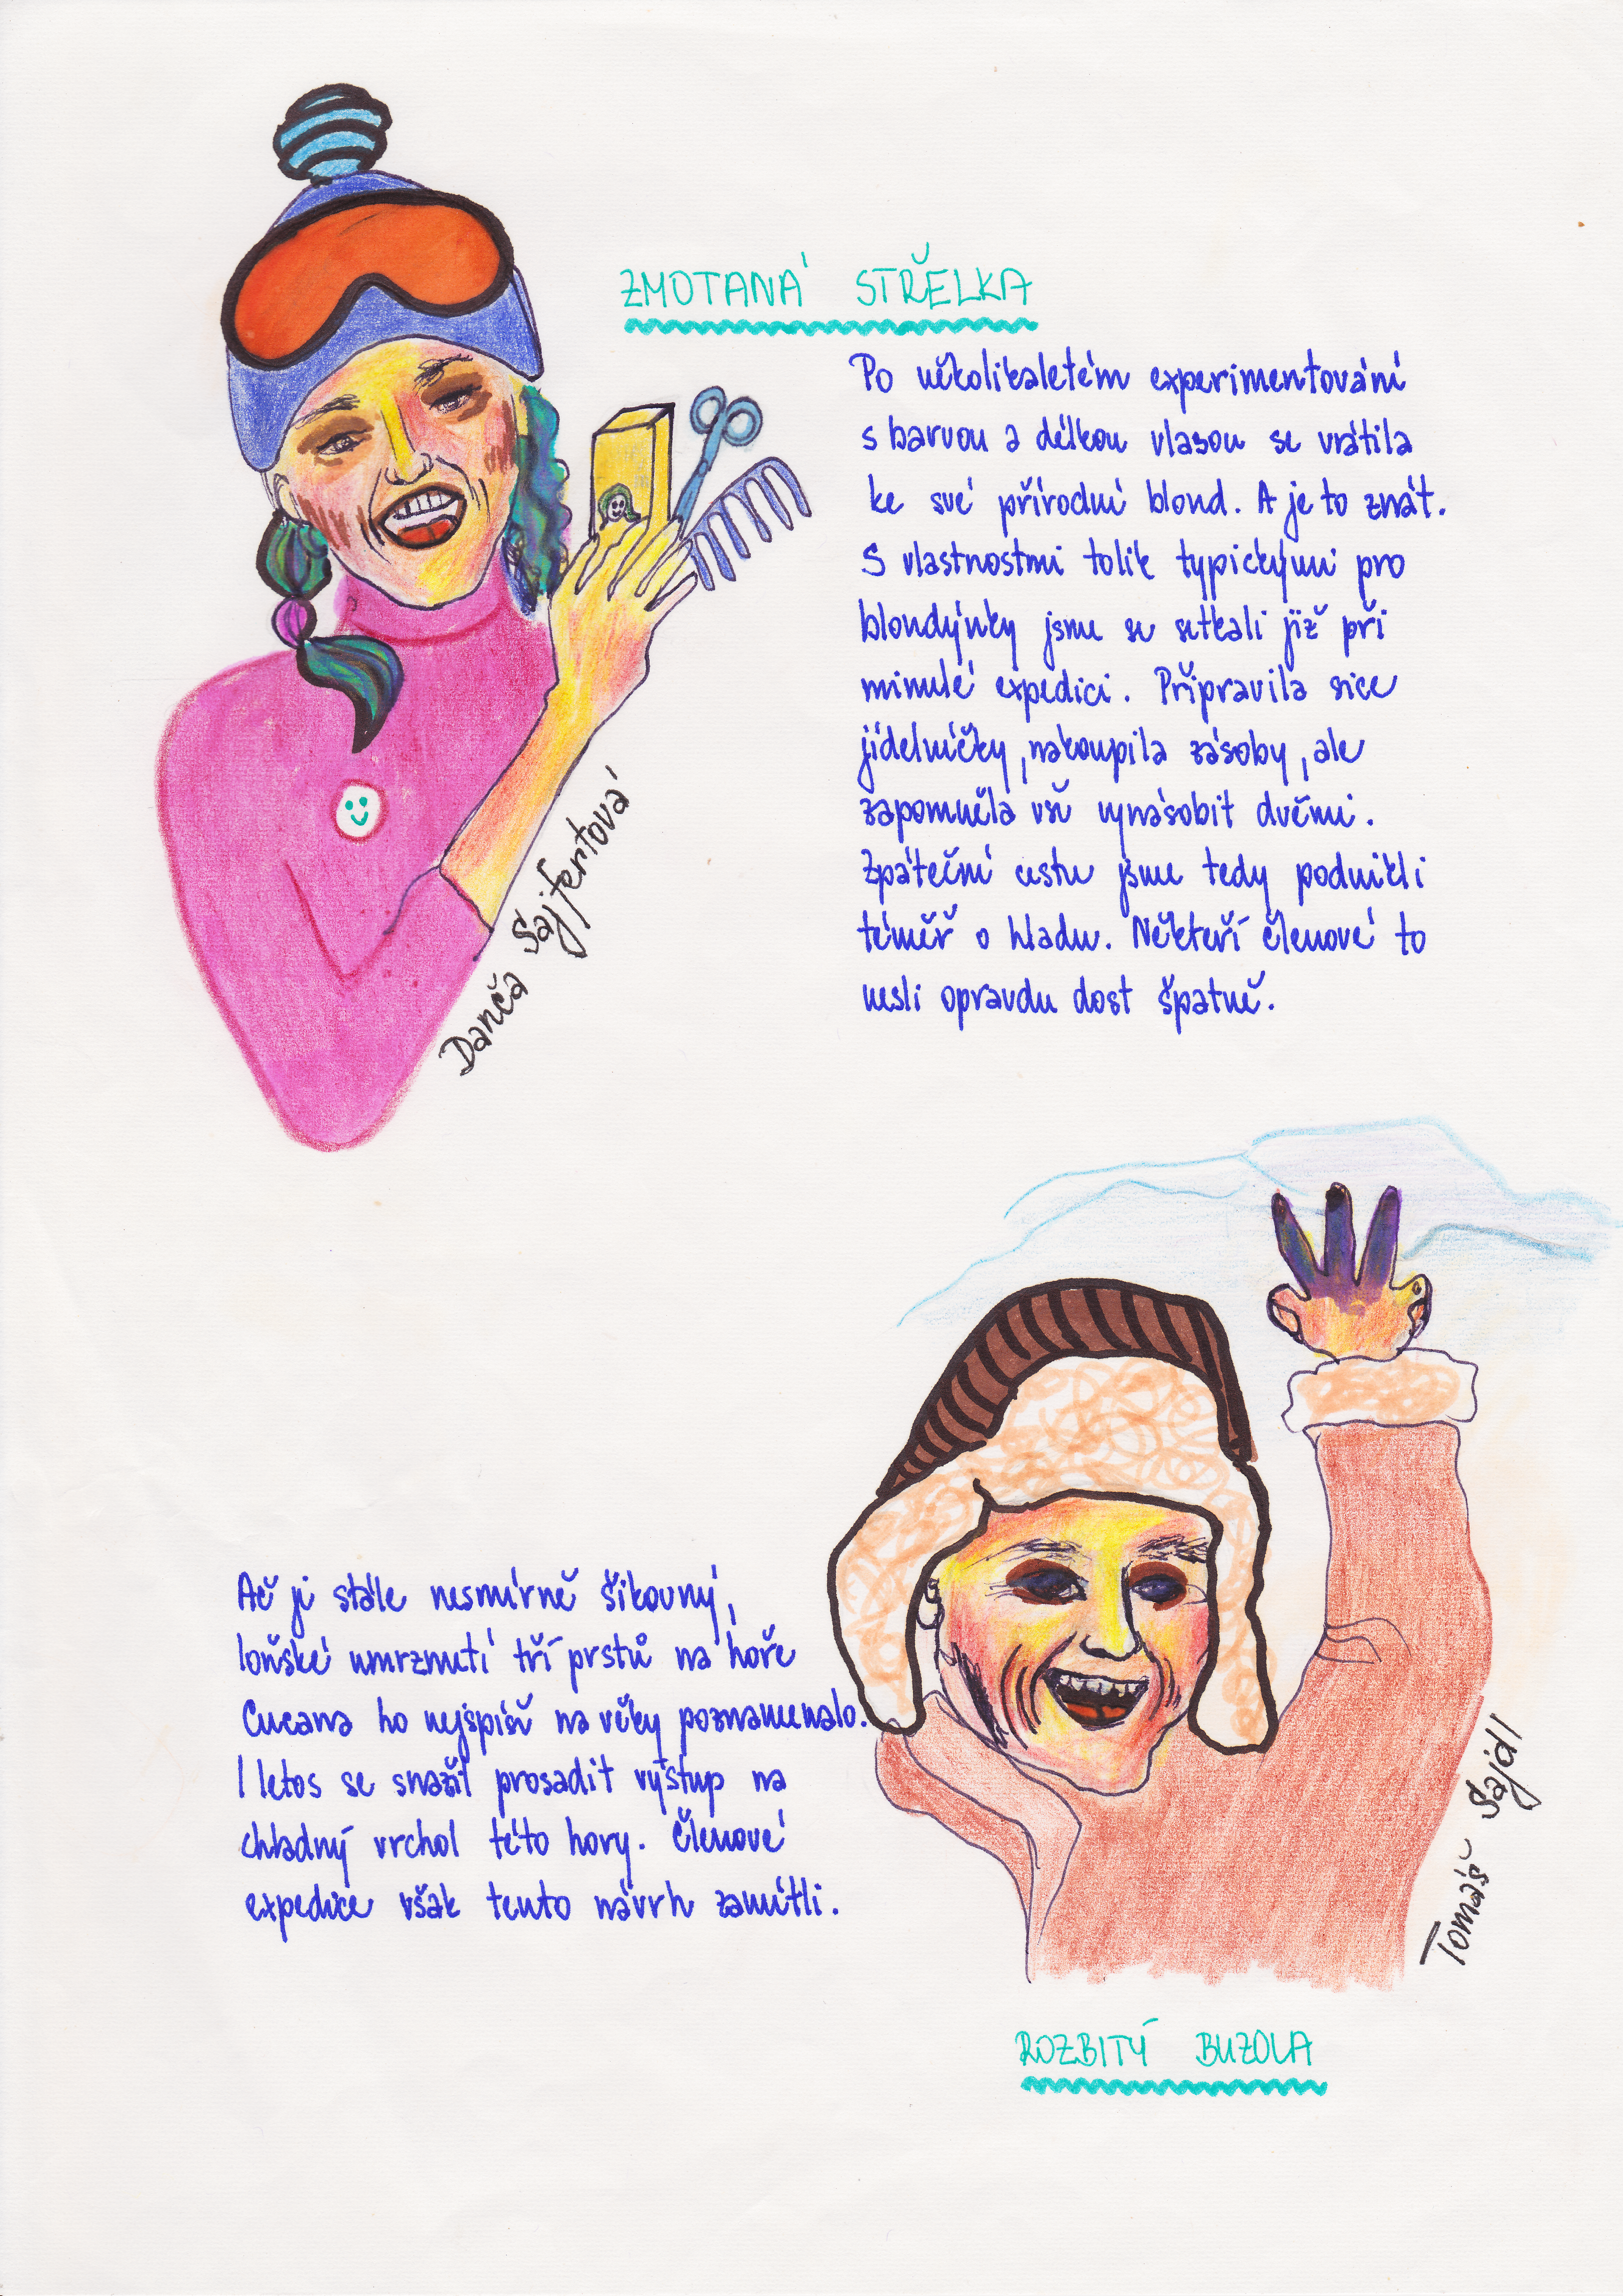 ZMOTANÁ STŘELKA
Po několikaletém experimentování
s barvou a délkou vlasou se vrátila
ke své přírodní blond. A je to znát.
S vlastnostmi tolik typickými pro
blondýnky jsme se setkali již při
minulé expedici. Připravila sice
jídelníčky, nakoupila zásoby, ale
zapomněla vše vynásobit dvěmi.
Zpáteční cestu jsme tedy podnikli
téměř o hladu. Někteří členové to
nesli opravdu dost špatně.
Danča Sajfertová
Ač je stále nesmírně šikovný,
loňské umrznutí tří prstů na hoře
Cucana ho nejspíš na věky poznamenalo.
I letos se snažil prosadit výstup na
chladný vrchol této hory. Členové
expedice však tento návrh zamítli.
Tomáš Sajdl
ROZBITÝ BUZOLA